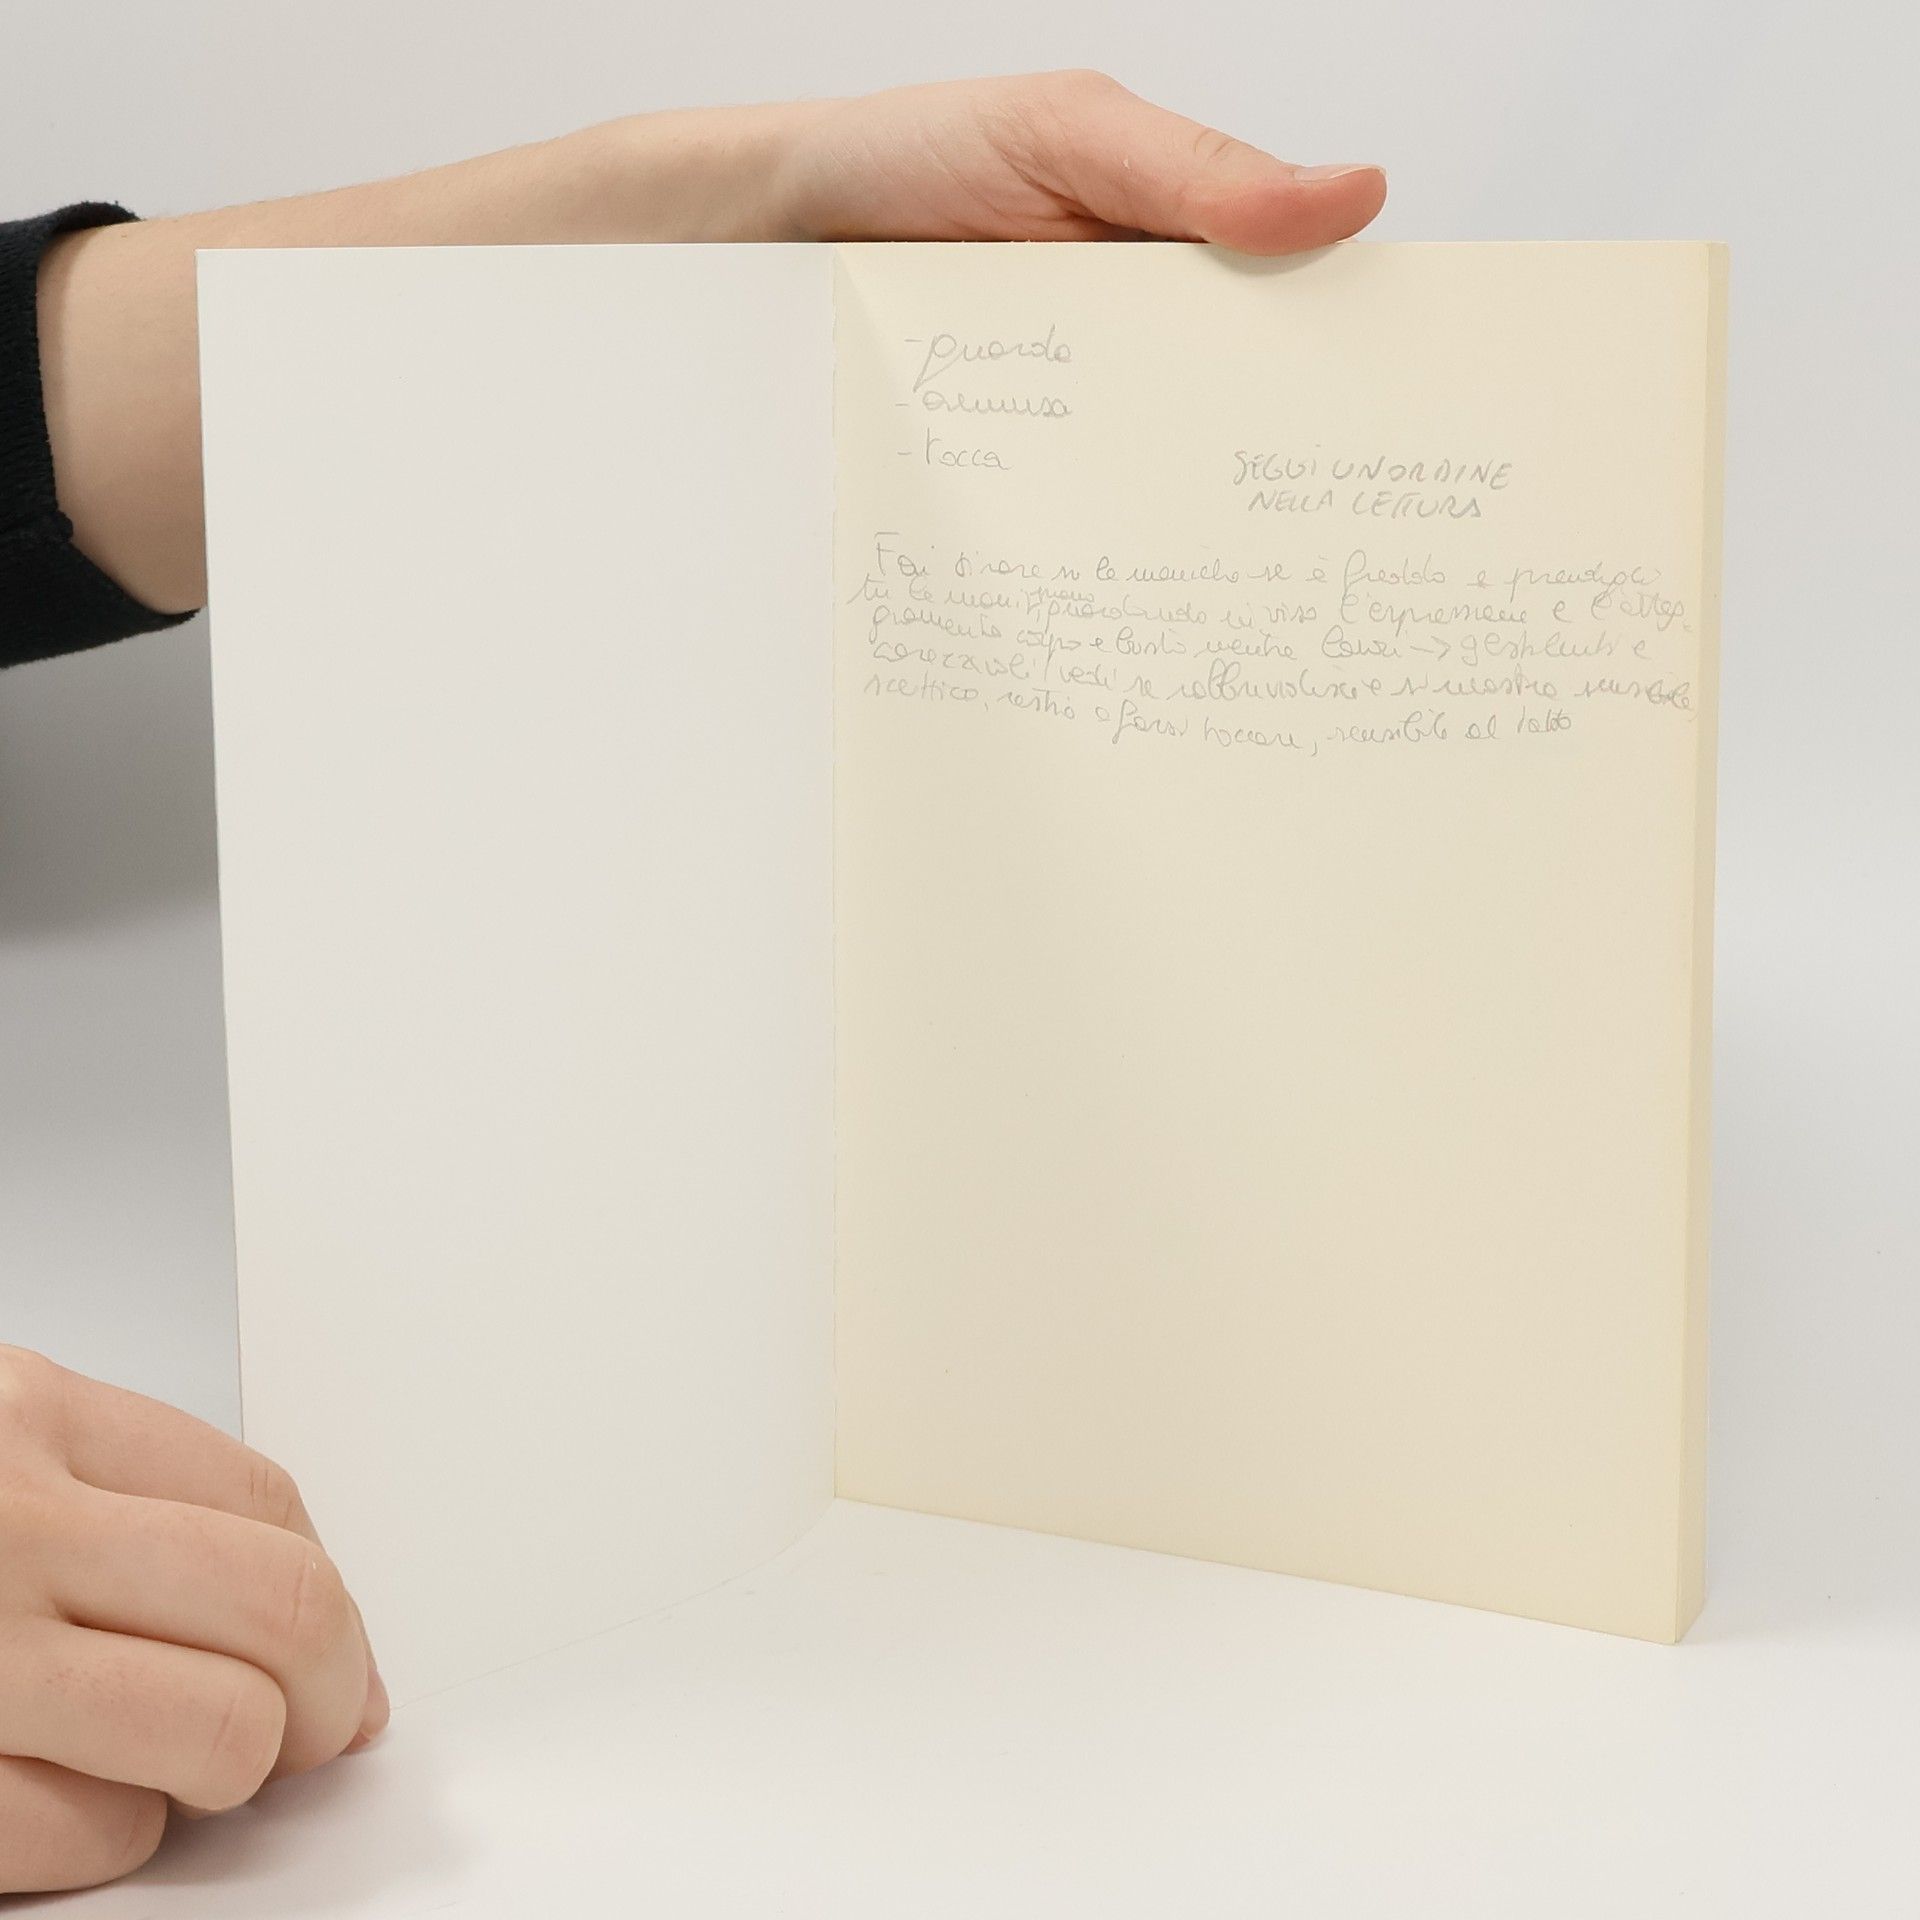 - guarda
- annusa
- tocca
SEGUI UN ORDINE
NELLA LETTURA
Fai tirare su le maniche se è freddo e prendigli
tu le mani, piano guardando in viso l'espressione e l'atteg-
giamento corpo e busto mentre lavori -> gesti lenti e
carezzevoli / vedi se rabbrividisce e si mostra
scettico, restio a farsi toccare, sensibile al tatto